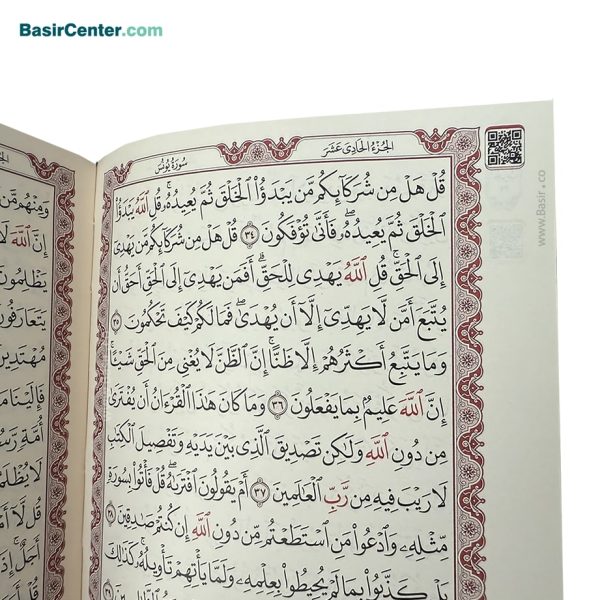 BasirCenter.com
سورة يونس
الجزء الحادی عشر
قُلْ هَلْ مِن شُرَكَآئِكُم مَّن يَبْدَؤُا۟ ٱلْخَلْقَ ثُمَّ يُعِيدُهُۥ ۚ قُلِ ٱللَّهُ يَبْدَؤُا۟
ٱلْخَلْقَ ثُمَّ يُعِيدُهُۥ ۖ فَأَنَّىٰ تُؤْفَكُونَ ٣٤ قُلْ هَلْ مِن شُرَكَآئِكُم مَّن يَهْدِىٓ
إِلَى ٱلْحَقِّ ۚ قُلِ ٱللَّهُ يَهْدِى لِلْحَقِّ ۗ أَفَمَن يَهْدِىٓ إِلَى ٱلْحَقِّ أَحَقُّ أَن
يُتَّبَعَ أَمَّن لَّا يَهِدِّىٓ إِلَّآ أَن يُهْدَىٰ ۖ فَمَا لَكُمْ كَيْفَ تَحْكُمُونَ ٣٥
وَمَا يَتَّبِعُ أَكْثَرُهُمْ إِلَّا ظَنًّا ۚ إِنَّ ٱلظَّنَّ لَا يُغْنِى مِنَ ٱلْحَقِّ شَيْـًٔا ۚ
إِنَّ ٱللَّهَ عَلِيمٌۢ بِمَا يَفْعَلُونَ ٣٦ وَمَا كَانَ هَٰذَا ٱلْقُرْءَانُ أَن يُفْتَرَىٰ
مِن دُونِ ٱللَّهِ وَلَٰكِن تَصْدِيقَ ٱلَّذِى بَيْنَ يَدَيْهِ وَتَفْصِيلَ ٱلْكِتَٰبِ
لَا رَيْبَ فِيهِ مِن رَّبِّ ٱلْعَٰلَمِينَ ٣٧ أَمْ يَقُولُونَ ٱفْتَرَىٰهُ ۖ قُلْ فَأْتُوا۟ بِسُورَةٍ
مِّثْلِهِۦ وَٱدْعُوا۟ مَنِ ٱسْتَطَعْتُم مِّن دُونِ ٱللَّهِ إِن كُنتُمْ صَٰدِقِينَ ٣٨
بَلْ كَذَّبُوا۟ بِمَا لَمْ يُحِيطُوا۟ بِعِلْمِهِۦ وَلَمَّا يَأْتِهِمْ تَأْوِيلُهُۥ ۚ كَذَٰلِكَ
www.Basir.co
وَمِنْهُم مَّن
إِنَّ ٱللَّهَ لَا
يَظْلِمُونَ
يَتَعَارَفُونَ
مُهْتَدِينَ
فَإِلَيْنَا
أُمَّةٍ
لَا يُظْلَمُونَ
قُل لَّآ
أَجَلٌ ۚ إِذَا
قُلْ